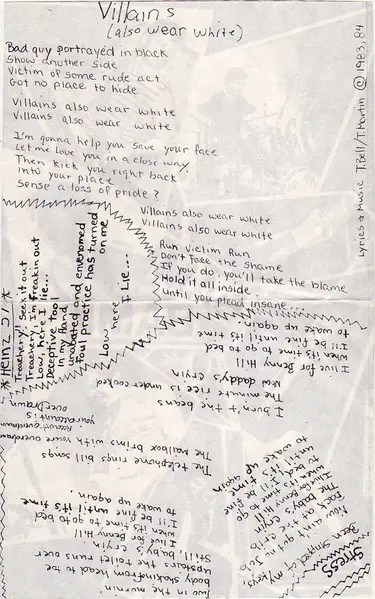 Villains
(also wear white)
Bad guy portrayed in black
Show another side
Victim of some rude act
Got no place to hide
Villains also wear white
Villains also wear white
I'm gonna help you save your face
Let me love you in a close way.
Then kick you right back
into your place
Sense a loss of pride?
Villains also wear white
Villains also wear white
Run Victim Run
Don't face the shame
If you do, you'll take the blame
Hold it all inside
until you plead insane...
Lyrics + Music T.Bell/T.Martin © 1983, 84
*Heinz 57*
Treachery! Seek it out
Treachery! I'm freakin out
Low here I lie...
Deceptive tool
in my hand
unabated and envenomed
foul practice has turned
on me
Low here
I Lie...
Stress
Been Stripped of my keys,
Now can't get no Job
Face as the rent
The baby's cryin
I live for Benny Hill
when it's time to go
to bed I'll be fine
until it's time
to wake up again
Two in the mornin
body shekin from head to be
upstairs the toilet runs over
Still, baby's cryin'.
I live for Benny Hill
when it's time to go to bed
I'll be fine until it's time
to wake up again.
The telephone rings bill songs
The Mailbox brings with yours overdrawn
your account is
overdrawn
I burn + the beans
The minute rice is under cooked
Now daddy's cryin
I live for Benny Hill
when it's time to go to bed
I'll be fine until it's time
to wake up again.